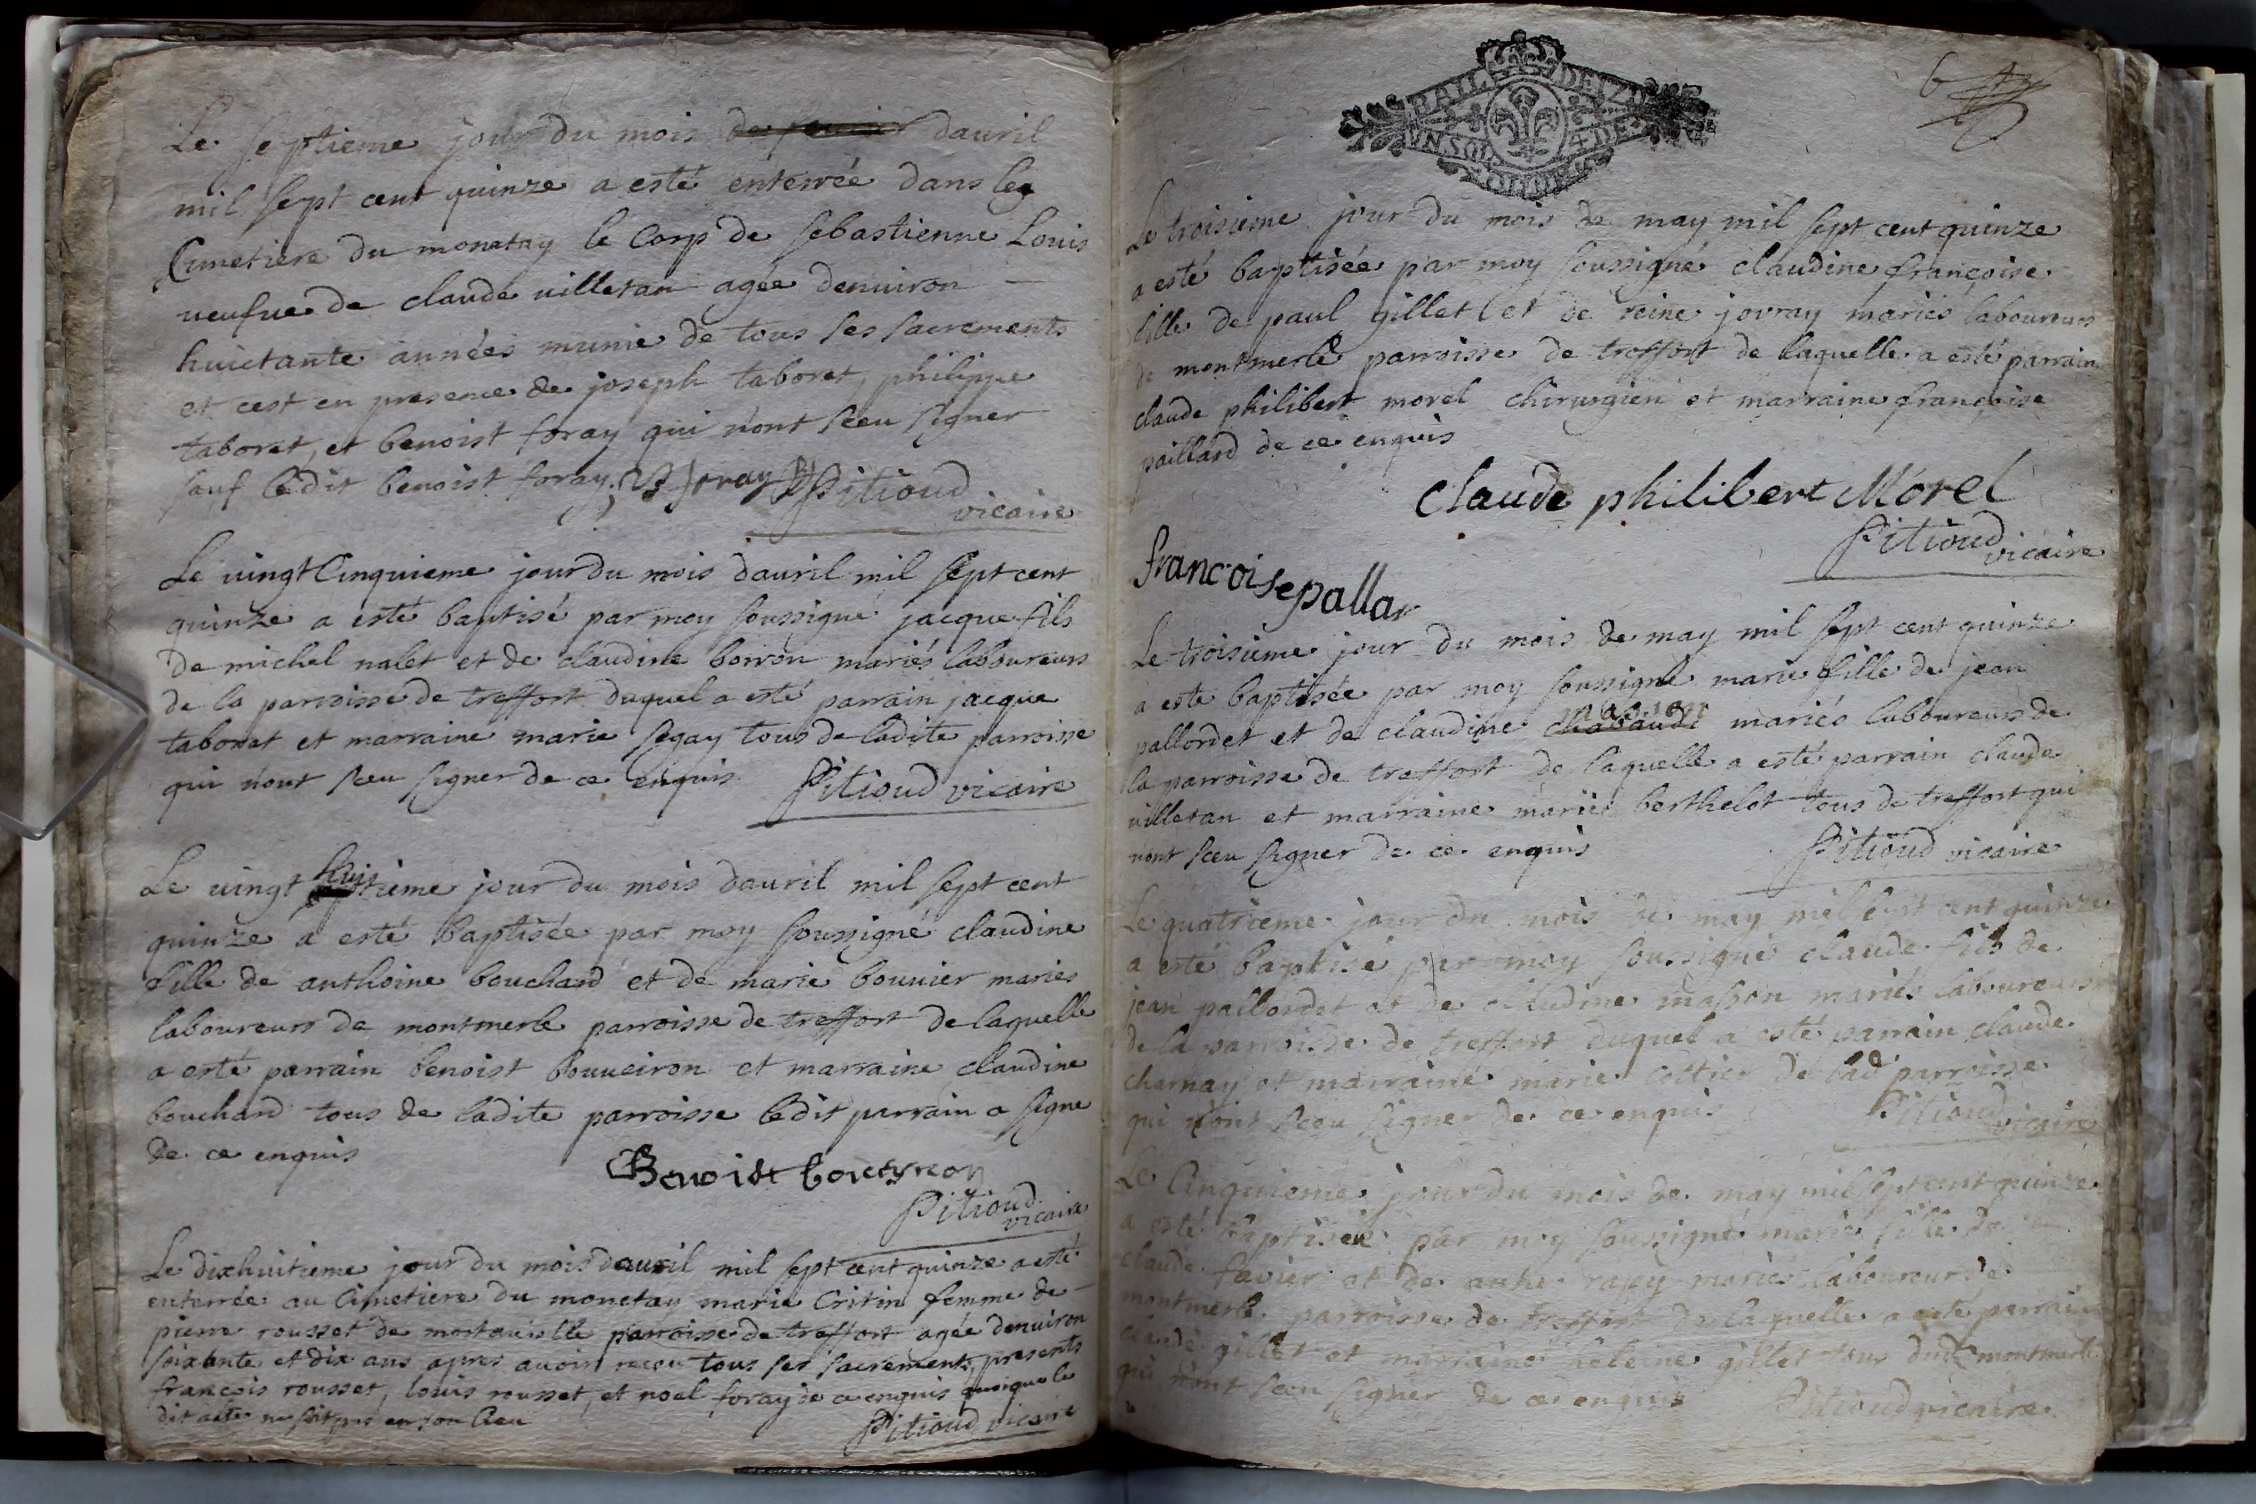 Le septieme jour du mois de feurier dauril
mil sept cent quinze a esté enterrée dans le
Cimetiere du monetay le Corp de sebastienne Louis
veufue de claude villetan agée denuiron
huictante années munie de tous ses sacrements
et cest en presence de joseph taboret, philippe
taboret, et benoist foray qui n'ont sceu signer
sauf ledit benoist foray. B foray Pitioud
vicaire
Le uingt Cinquieme jour du mois dauril mil sept cent
quinze a esté baptisé par moy soussigné jacque fils
de michel nalet et de claudine borron mariés laboureurs
de la parroisse de treffort duquel a esté parrain jacque
taboret et marraine marie segay tous de ladite parroisse
qui n'ont sceu signer de ce enquis Pitioud vicaire
Le uingt huitieme jour du mois dauril mil sept cent
quinze a esté baptisée par moy soussigné claudine
fille de anthoine bouchard et de marie bouuier maries
laboureurs de montmerle parroisse de treffort de laquelle
a esté parrain benoist bouueiron et marraine claudine
bouchard tous de ladite parroisse ledit parrain a signe
de ce enquis
Benoist bouuyron
Pitioud
vicaire
Le dixhuitieme jour du mois dauril mil sept cent quinze a esté
enterrée au Cimetiere du monetay marie Critin femme de
pierre rousset de parroisse de treffort agée denuiron
soixante et dix ans apres auoir receu tous ses sacrements, presents
françois rousset, louis rousset, et noel foray de ce enquis quoique le
dit acte ne soit pas en son lieu Pitioud vicaire
BAIL DEIZD
UN SOL 4 DE
6
Le troisieme jour du mois de may mil sept cent quinze
a esté baptisée par moy soussigné claudine françoise
fille de paul gillet et de reine jovray mariés laboureurs
de montmerle parroisse de treffort de laquelle a esté parrain
claude philibert morel chirurgien et marraine françoise
paillard de ce enquis
Claude philibert Morel
Pitioud
vicaire
francoise pallar
Le troisieme jour du mois de may mil sept cent quinze
a esté baptisée par moy soussigné marie fille de jean
masson
pallordet et de claudine chabaud mariés laboureurs de
la parroisse de treffort de laquelle a esté parrain claude
villetan et marraine marie berthelot tous de treffort qui
n'ont sceu signer de ce enquis
Pitioud vicaire
Le quatrieme jour du mois de may mil sept cent quinze
a esté baptisé par moy soussigné claude fils de
jean pallordet et de claudine masson mariés laboureurs
de la parroisse de treffort duquel a esté parrain claude
charnay et marraine marie cottier de lad parroisse
qui n'ont sceu signer de ce enquis Pitioud
vicaire
Le Cinquieme jour du mois de may mil sept cent quinze
a esté baptisée par moy soussigné marie fille de
claude favier et de anthe mariés laboureurs de
montmerle parroisse de treffort de laquelle a esté parrain
claude gillet et marraine helene gillet tous dud montmerle
qui n'ont sceu signer de ce enquis Pitioud vicaire